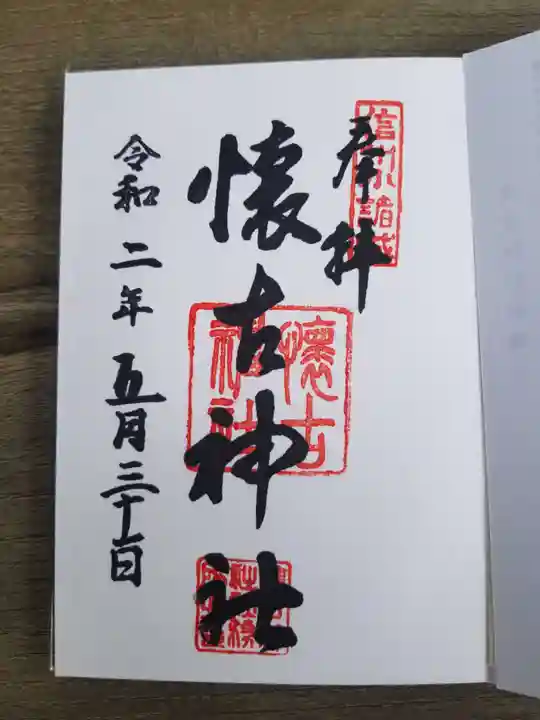 奉拝
懐古神社
令和二年五月三十一日
懐古
神社